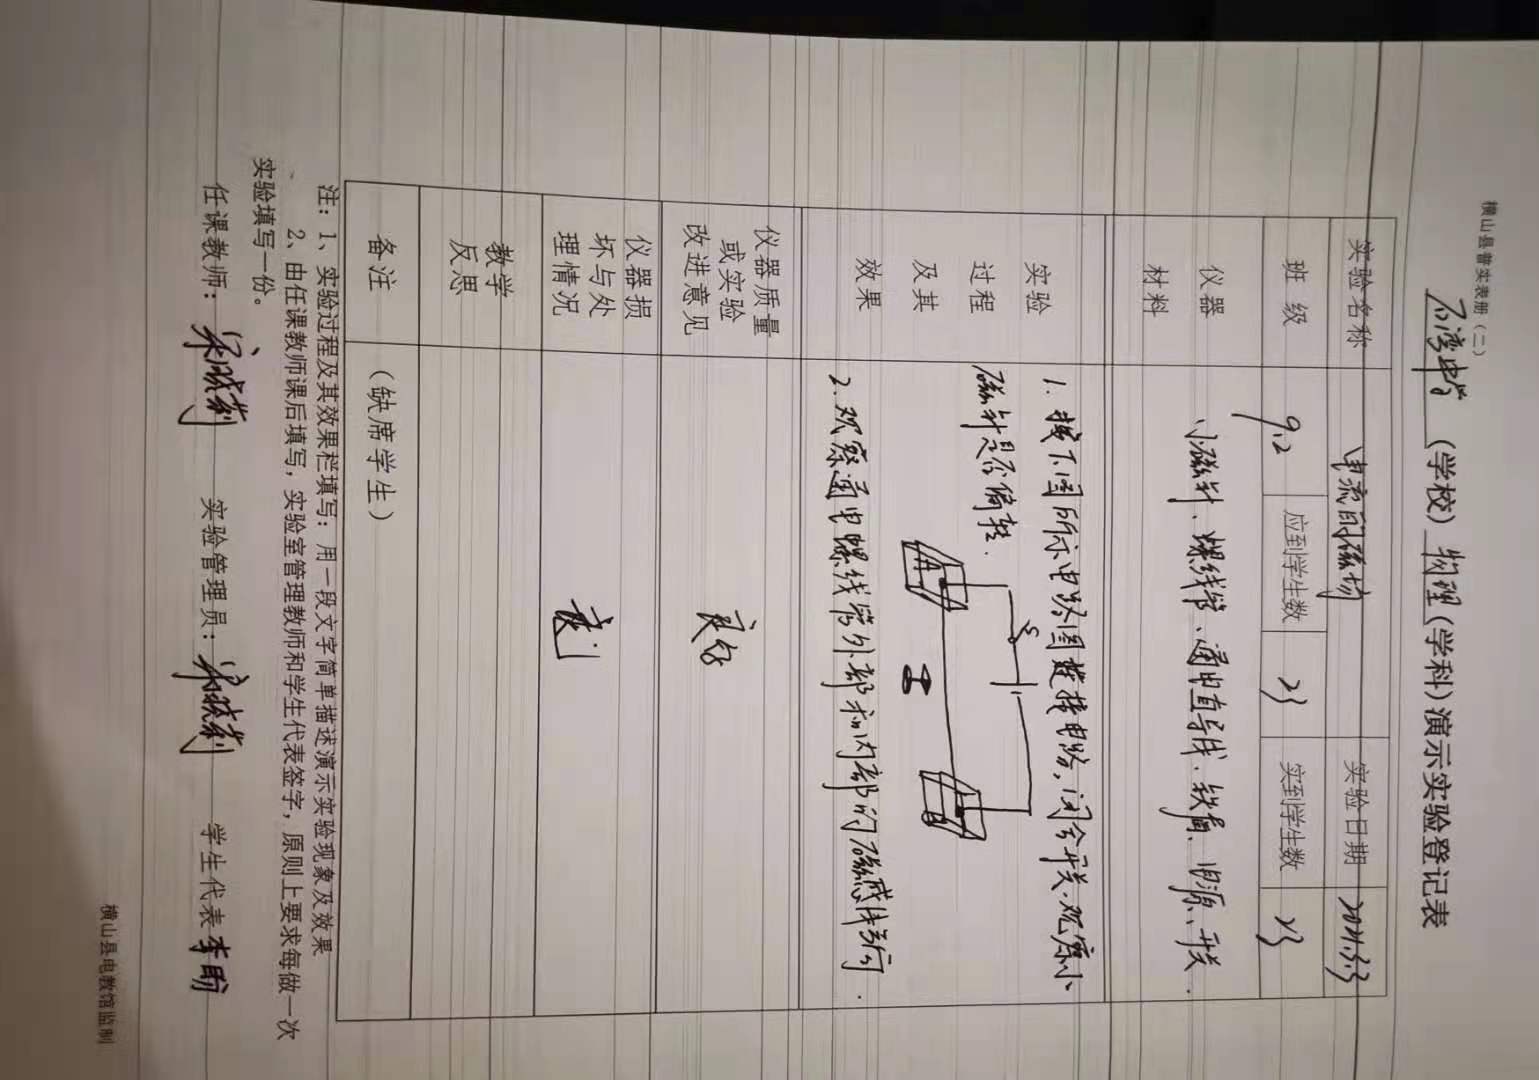 横山县普实表册（二）
石湾中学（学校）物理（学科）演示实验登记表
实验名称 电流的磁场 实验日期 2021.3.3
班级 9.2 应到学生数 23 实到学生数 23
仪器材料 小磁针、螺线管、通电直导线、铁屑、电源、开关.
实验过程及其效果
1. 按下图所示电路图连接电路,闭合开关,观察小
磁针是否偏转.
S
2. 观察通电螺线管外部和内部的磁感线方向.
仪器质量或实验改进意见 良好
仪器损坏与处理情况
教学反思
备注 （缺席学生）
注：1、实验过程及其效果栏填写：用一段文字简单描述演示实验现象及效果
2、由任课教师课后填写，实验室管理教师和学生代表签字，原则上要求每做一次
实验填写一份。
任课教师： 实验管理员： 学生代表 李盼
横山县电教馆监制